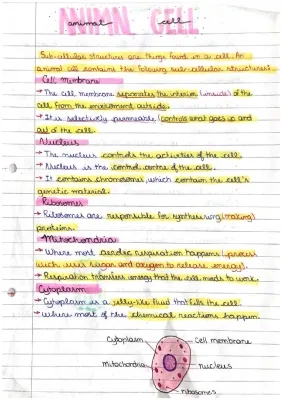 ANIMAL CELL
animal cell
Sub-cellular structures are things found in a cell. An
animal cell contains the following sub-cellular structures:
Cell membrane
→ The cell membrane separates the interior (inside) of the
cell from the environment outside.
→ It is selectively permeable (controls what goes in and
out of the cell.
Nucleus
→ The nucleus controls the activities of the cell.
→ Nucleus is the control centre of the cell.
→ It contains chromosomes, which contain the cell's
genetic material.
Ribosomes
→ Ribosomes are responsible for synthesising (making)
proteins.
Mitochondria
→ Where most aerobic respiration happens (process
which uses sugar and oxygen to release energy).
→ Respiration transfers energy that the cell needs to work.
Cytoplasm
→ Cytoplasm is a jelly-like fluid that fills the cell.
→ Where most of the chemical reactions happen.
Cytoplasm
Cell membrane
mitochondria
nucleus
ribosomes